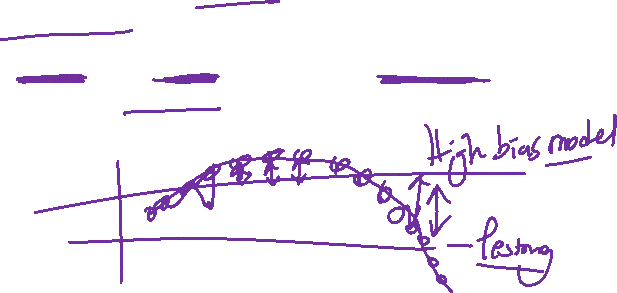 High bias model
Testing